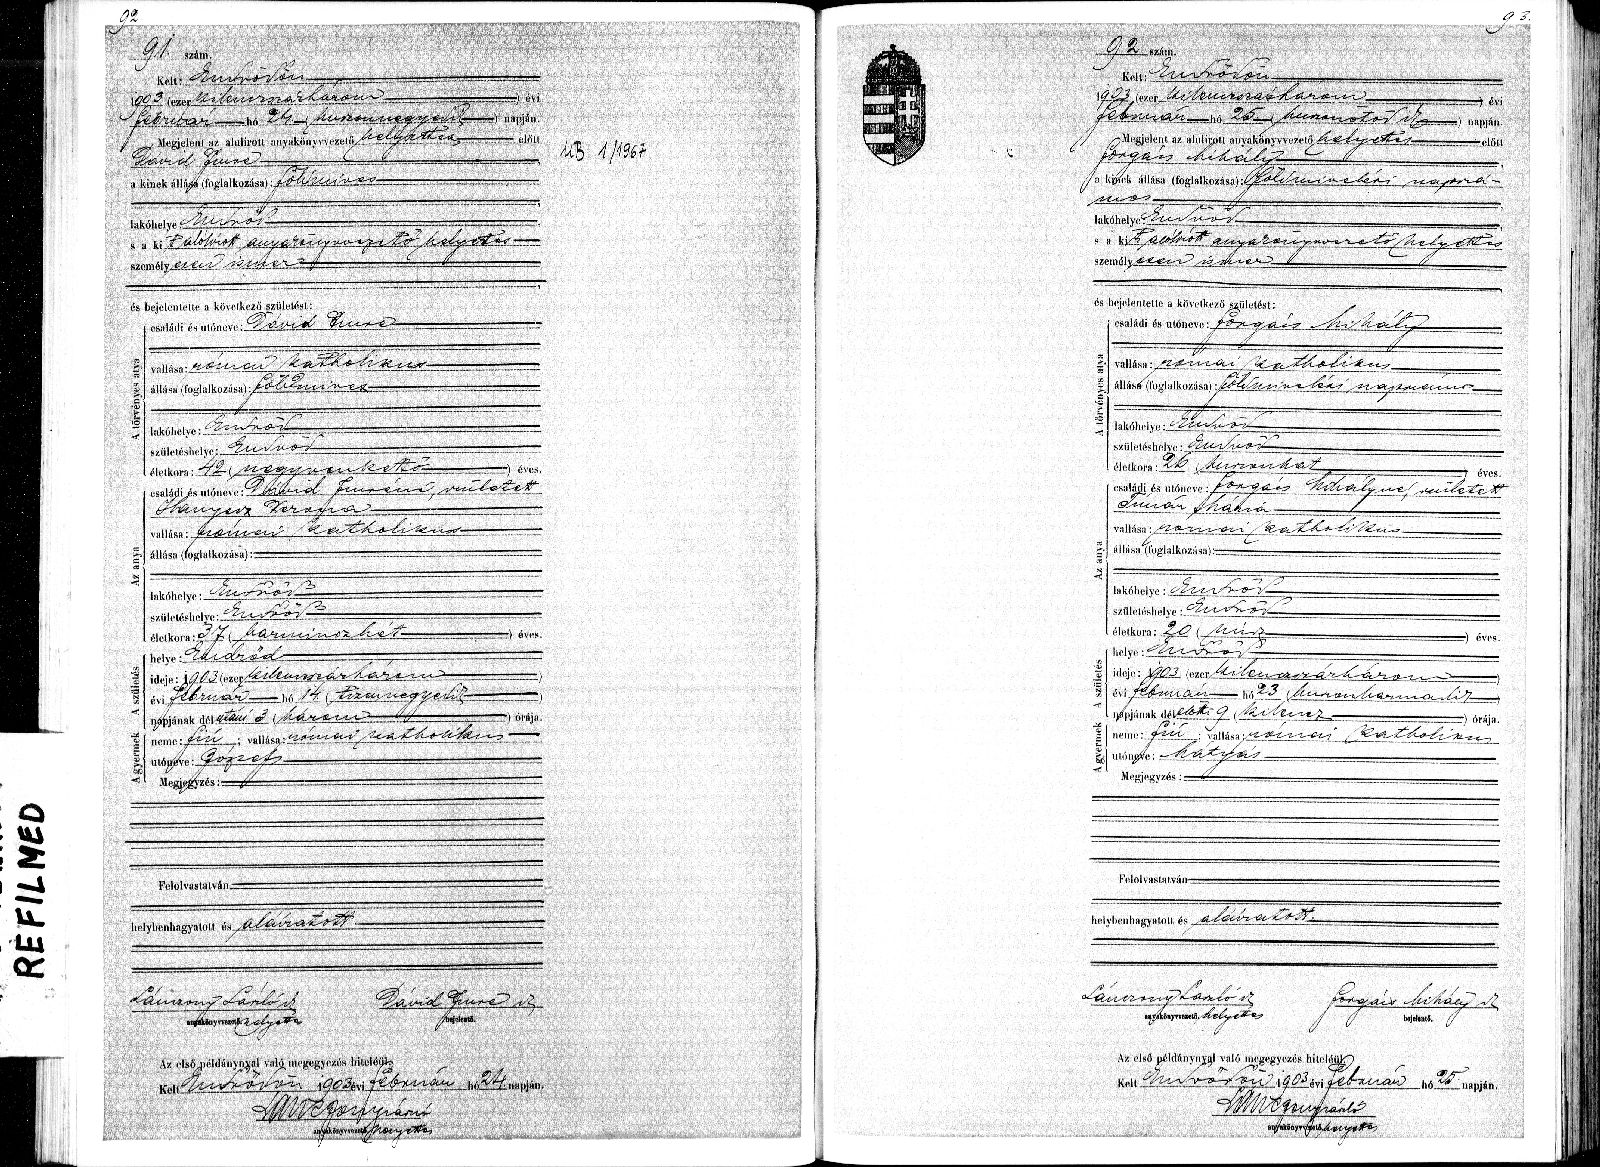 92
91 szám.
Kelt: Endrődön
1903 (ezer kilenczszázhárom) évi
február hó 24 (huszonnegyedik) napján.
Megjelent az alulirott anyakönyvvezető helyettes előtt
Dávid Imre
a kinek állása (foglalkozása): földmives
lakóhelye Endrőd
s a kit alólirott anyakönyvvezető helyettes
személyesen ismer
és bejelentette a következő születést:
A törvényes atya
családi és utóneve: Dávid Imre
vallása: római katholikus
állása (foglalkozása): földmives
lakóhelye: Endrőd
születéshelye: Endrőd
életkora: 42 (negyvenkettő) éves.
Az anya
családi és utóneve: Dávid Imréné, született
Hanyecz Verona
vallása: római katholikus
állása (foglalkozása):
lakóhelye: Endrőd
születéshelye: Endrőd
életkora: 37 (harminczhét) éves.
A születés
helye: Endrőd
ideje: 1903 (ezer kilenczszázhárom
évi február hó 14 (tizennegyedik)
napjának dél utáni 3 (három) órája.
A gyermek
neme: fiú; vallása: római katholikus
utóneve: József
Megjegyzés:
Felolvastatván
helybenhagyatott és aláiratott
Lánczony László sk Dávid Imre sk
anyakönyvvezető. helyettes bejelentő.
Az első példánynyal való megegyezés hiteléül
Kelt Endrődön 1903 évi február hó 24 napján.
anyakönyvvezető helyettes
UB 1/1967
REFILMED
93.
92 szám.
Kelt: Endrődön
1903 (ezer kilenczszázhárom) évi
február hó 25 (huszonötödik) napján.
Megjelent az alulirott anyakönyvvezető helyettes előtt
Forgács Mihály
a kinek állása (foglalkozása): földmivelési napszá-
mos
lakóhelye Endrőd
s a kit alólirott anyakönyvvezető helyettes
személyesen ismer
és bejelentette a következő születést:
A törvényes atya
családi és utóneve: Forgács Mihály
vallása: római katholikus
állása (foglalkozása): földmivelési napszámos
lakóhelye: Endrőd
születéshelye: Endrőd
életkora: 26 (huszonhat) éves.
Az anya
családi és utóneve: Forgács Mihályné, született
Timár Mária
vallása: római katholikus
állása (foglalkozása):
lakóhelye: Endrőd
születéshelye: Endrőd
életkora: 20 (húsz) éves.
A születés
helye: Endrőd
ideje: 1903 (ezer kilenczszázhárom)
évi február hó 23 (huszonharmadik)
napjának dél előtti 9 (kilencz) órája.
A gyermek
neme: fiú; vallása: római katholikus
utóneve: Mátyás
Megjegyzés:
Felolvastatván
helybenhagyatott és aláiratott.
Lánczony László sk Forgács Mihály sk
anyakönyvvezető. helyettes bejelentő.
Az első példánynyal való megegyezés hiteléül
Kelt Endrődön 1903 évi február hó 25 napján.
anyakönyvvezető helyettes